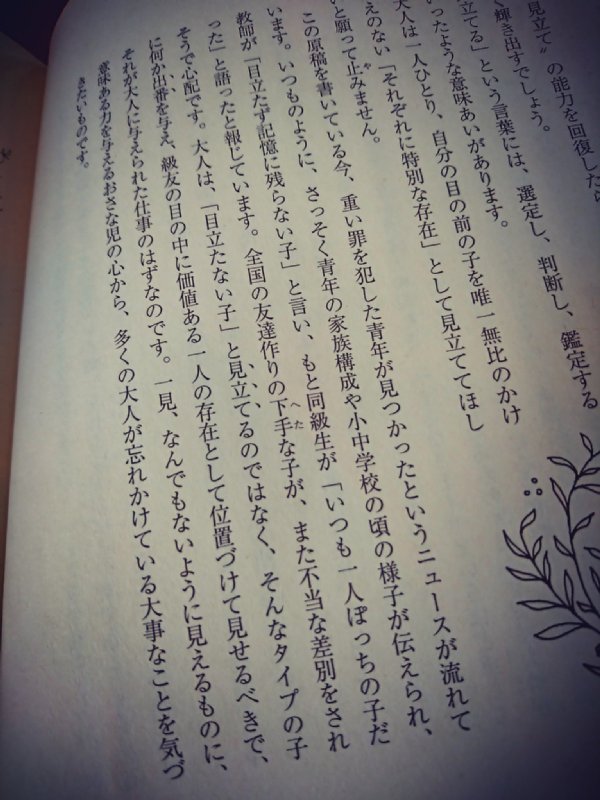 見立て〟の能力を回復したら
く輝き出すでしょう。
立てる」という言葉には、選定し、判断し、鑑定する
ったような意味あいがあります。
大人は一人ひとり、自分の目の前の子を唯一無比のかけ
えのない「それぞれに特別な存在」として見立ててほし
いと願って止みません。
この原稿を書いている今、重い罪を犯した青年が見つかったというニュースが流れて
います。いつものように、さっそく青年の家族構成や小中学校の頃の様子が伝えられ、
教師が「目立たず記憶に残らない子」と言い、もと同級生が「いつも一人ぽっちの子だ
った」と語ったと報じています。全国の友達作りの下手な子が、また不当な差別をされ
そうで心配です。大人は、「目立たない子」と見立てるのではなく、そんなタイプの子
に何か出番を与え、級友の目の中に価値ある一人の存在として位置づけて見せるべきで、
それが大人に与えられた仕事のはずなのです。一見、なんでもないように見えるものに、
意味ある力を与えるおさな児の心から、多くの大人が忘れかけている大事なことを気づ
きたいものです。